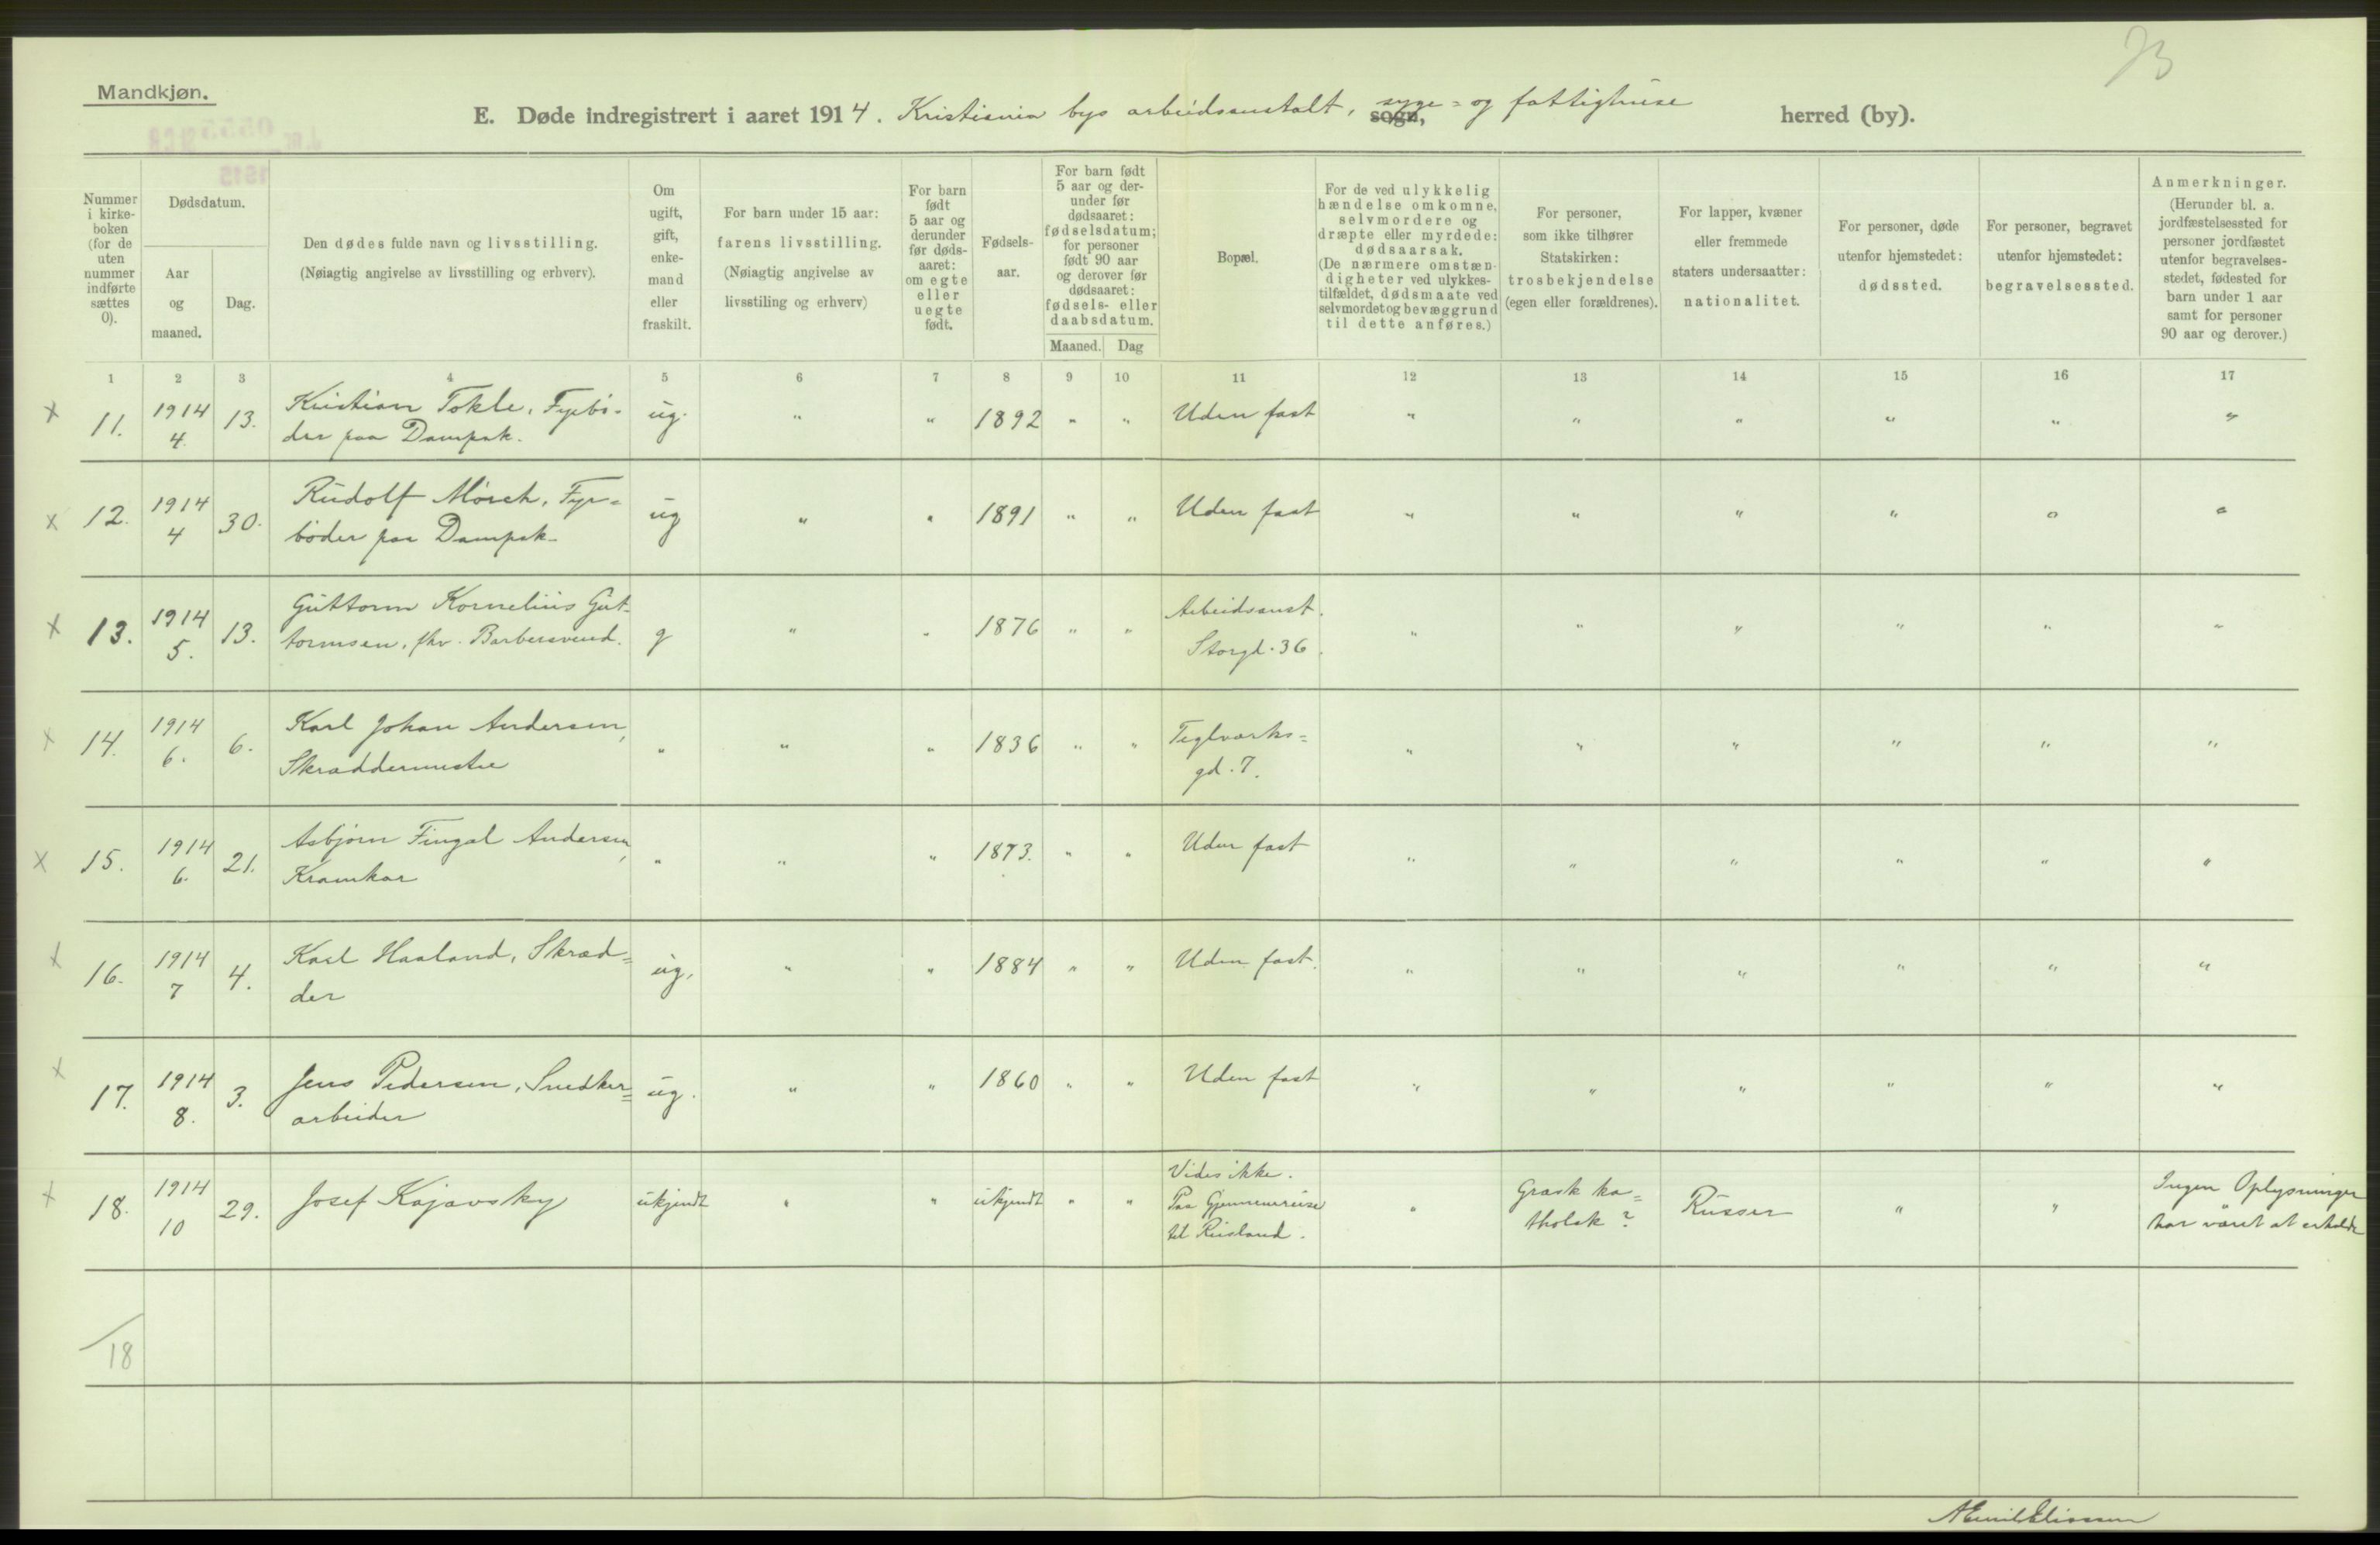 73
Mandkjøn.
E. Døde indregistrert i aaret 1914. Kristiania bys arbeidsanstalt, syge- og fattighuse sogn, herred (by).
Nummer i kirkeboken (for de uten nummer indførte sættes 0).
Dødsdatum.
Aar og maaned.
Dag.
Den dødes fulde navn og livsstilling.
(Nøiagtig angivelse av livsstilling og erhverv).
Om ugift, gift, enkemand eller fraskilt.
For barn under 15 aar: farens livsstilling.
(Nøiagtig angivelse av livsstiling og erhverv)
For barn født 5 aar og derunder før dødsaaret: om egte eller uegte født.
Fødselsaar.
For barn født 5 aar og derunder før dødsaaret: fødselsdatum; for personer født 90 aar og derover før dødsaaret: fødsels- eller daabsdatum.
Maaned. Dag
Bopæl.
For de ved ulykkelig hændelse omkomne, selvmordere og dræpte eller myrdede: dødsaarsak. (De nærmere omstændigheter ved ulykkestilfældet, dødsmaate ved selvmordet og bevæggrund til dette anføres.)
For personer, som ikke tilhører Statskirken: trosbekjendelse (egen eller forældrenes).
For lapper, kvæner eller fremmede staters undersaatter: nationalitet.
For personer, døde utenfor hjemstedet: dødssted.
For personer, begravet utenfor hjemstedet: begravelsessted.
Anmerkninger.
(Herunder bl. a. jordfæstelsessted for personer jordfæstet utenfor begravelsesstedet, fødested for barn under 1 aar samt for personer 90 aar og derover.)
1 2 3 4 5 6 7 8 9 10 11 12 13 14 15 16 17
x 11. 1914 4. 13. Kristian Tokle, Fyrbø-
der paa Dampsk. ug. " " 1892 " " Uden fast " " " " " "
x 12. 1914 4 30. Rudolf Mörch, Fyr=
böder paa Dampsk. ug " " 1891 " " Uden fast " " " " " "
x 13. 1914 5. 13. Guttorm Kornelius Gut-
tormsen, fhv. Barbersvend. g " " 1876 " " Arbeidsanst.
Storgd. 36. " " " " " "
x 14. 1914 6. 6. Karl Johan Andersen,
Skræddermester " " " 1836 " " Teglværks=
gd. 7. " " " " " "
x 15. 1914 6. 21. Asbjørn Fingal Andersen,
Kramkar " " " 1873. " " Uden fast " " " " " "
x 16. 1914 7 4. Karl Haaland, Skræd=
der ug. " " 1884 " " Uden fast. " " " " " "
x 17. 1914 8. 3. Jens Pedersen, Snedker=
arbeider ug. " " 1860 " " Uden fast " " " " " "
x 18. 1914 10 29. Josef Kajavsky ukjendt " " ukjendt " " Vides ikke.
Paa Gjennemreise
til Rusland. " Græsk ka=
tholsk? Russer " " Ingen Oplysninger
har været at erholde
18